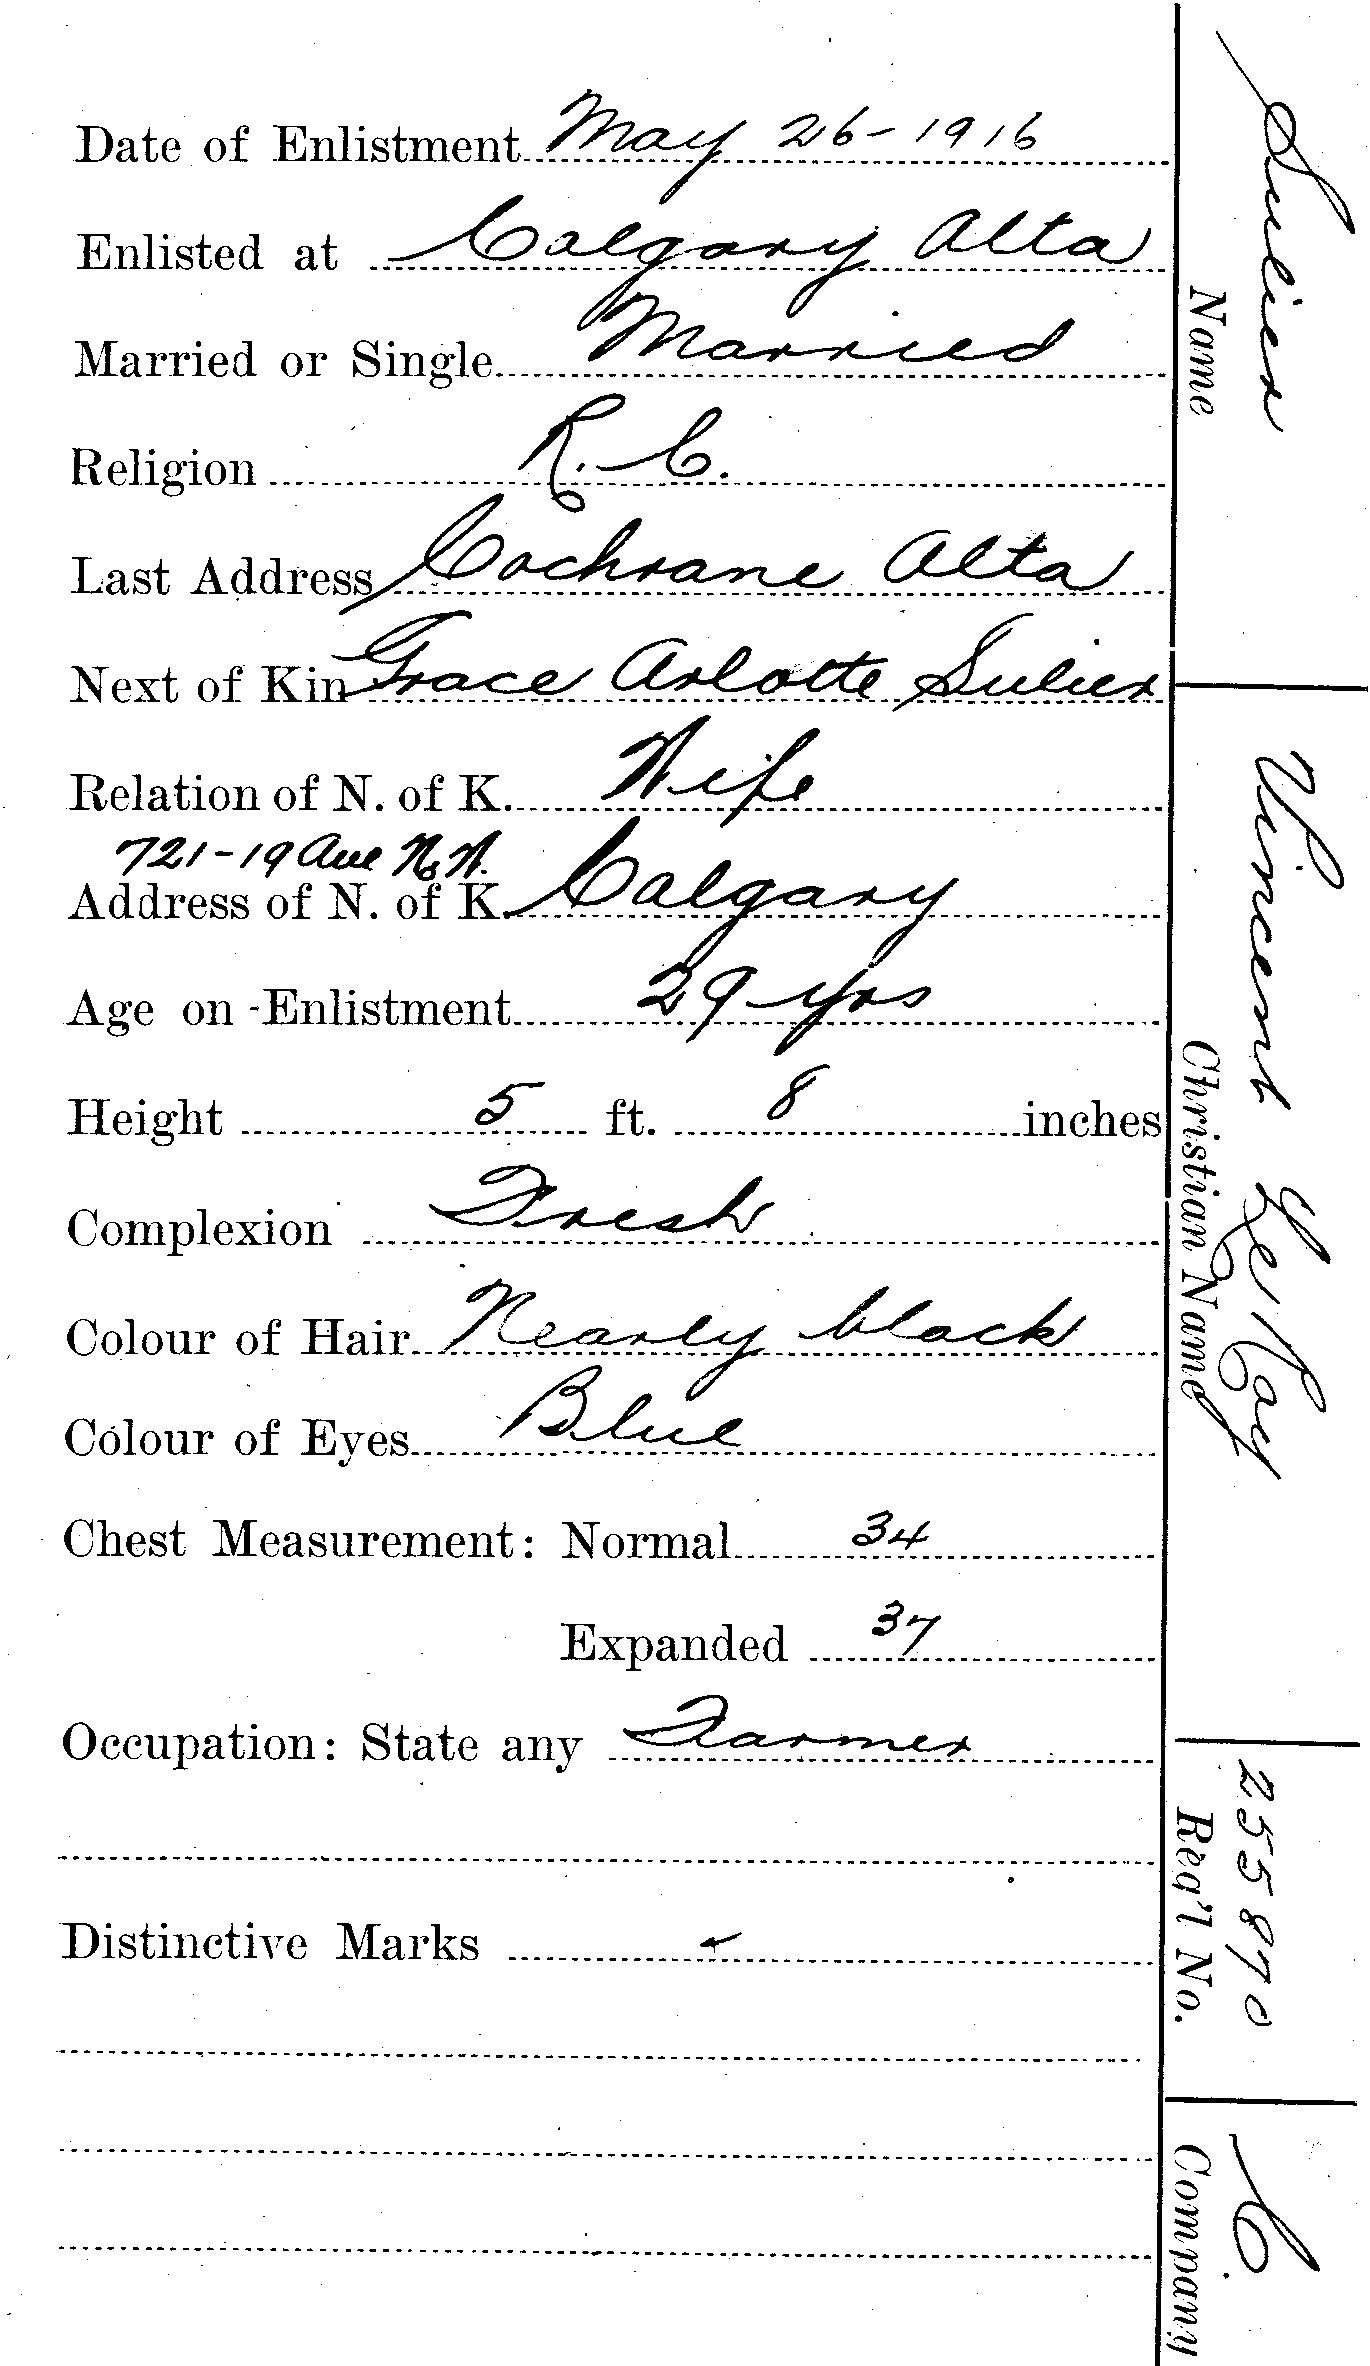 Date of Enlistment May 26-1916
Enlisted at Calgary Alta
Married or Single Married
Religion R.C.
Last Address Cochrane Alta
Next of Kin Grace Arlotte Sulier
Relation of N. of K. Wife
721-19 Ave N.W.
Address of N. of K. Calgary
Age on Enlistment 29 yrs
Height 5 ft. 8 inches
Complexion Fresh
Colour of Hair Nearly black
Colour of Eyes Blue
Chest Measurement: Normal 34
Expanded 37
Occupation: State any Farmer
Distinctive Marks
Sulier
Name
Vincent LeRay
Christian Name
255870
Reg'l No.
C
Company